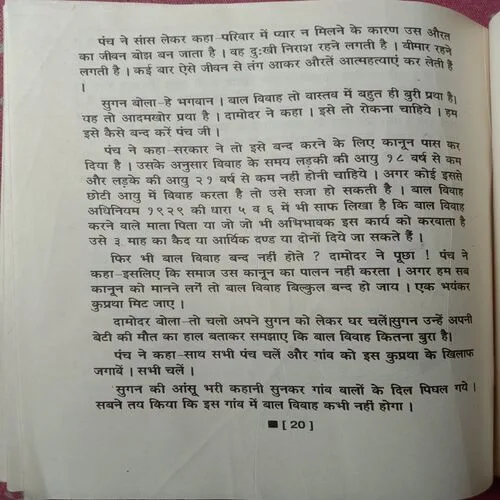 पंच ने सांस लेकर कहा–परिवार में प्यार न मिलने के कारण उस औरत
का जीवन बोझ बन जाता है । वह दु:खी निराश रहने लगती है । बीमार रहने
लगती है । कई बार ऐसे जीवन से तंग आकर औरतें आत्महत्याएं कर लेती हैं
।
सुगन बोला–हे भगवान । बाल विवाह तो वास्तव में बहुत ही बुरी प्रथा है।
यह तो आदमखोर प्रथा है । दामोदर ने कहा । इसे तो रोकना चाहिये । हम
इसे कैसे बन्द करें पंच जी ।
पंच ने कहा–सरकार ने तो इसे बन्द करने के लिए कानून पास कर
दिया है । उसके अनुसार विवाह के समय लड़की की आयु १८ वर्ष से कम
और लड़के की आयु २१ वर्ष से कम नहीं होनी चाहिये । अगर कोई इससे
छोटी आयु में विवाह करता है तो उसे सजा हो सकती है । बाल विवाह
अधिनियम १९२९ की धारा ५ व ६ में भी साफ लिखा है कि बाल विवाह
करने वाले माता पिता या जो जो भी अभिभावक इस कार्य को करवाता है
उसे ३ माह का कैद या आर्थिक दण्ड या दोनों दिये जा सकते हैं ।
फिर भी बाल विवाह बन्द नहीं होते ? दामोदर ने पूछा ! पंच ने
कहा–इसलिए कि समाज उस कानून का पालन नहीं करता । अगर हम सब
कानून को मानने लगें तो बाल विवाह बिल्कुल बन्द हो जाय । एक भयंकर
कुप्रथा मिट जाए ।
दामोदर बोला–तो चलो अपने सुगन को लेकर घर चलें।सुगन उन्हें अपनी
बेटी की मौत का हाल बताकर समझाए कि बाल विवाह कितना बुरा है।
पंच ने कहा–साथ सभी पंच चलें और गांव को इस कुप्रथा के खिलाफ
जगावें । सभी चलें ।
सुगन की आंसू भरी कहानी सुनकर गांव बालों के दिल पिघल गये ।
सबने तय किया कि इस गांव में बाल विवाह कभी नहीं होगा ।
[ 20 ]